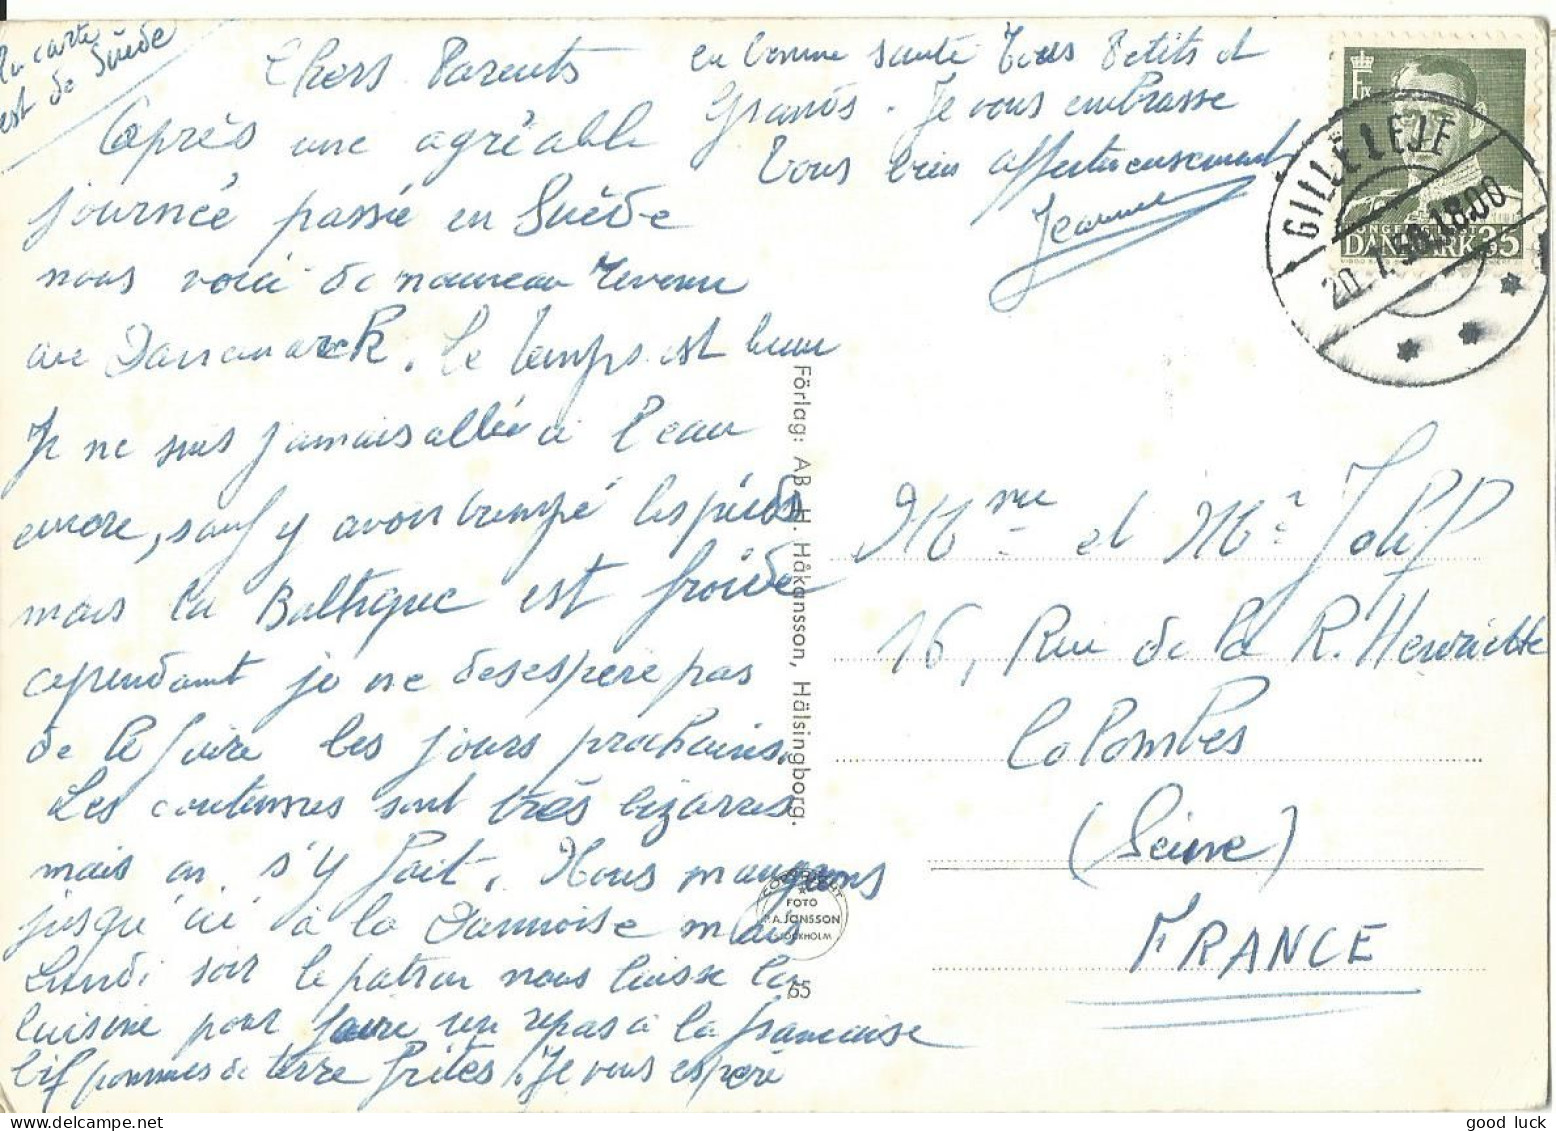 La carte
est de Suède
Chers Parents
Après une agréable
journée passée en Suède
nous voici de nouveau revenu
au Danemarck. Le temps est beau
Je ne suis jamais allée à l'eau
encore, sauf y avoir trempé les pieds
mais la Baltique est froide
cependant je ne desespère pas
de le faire les jours prochains.
Les coutumes sont très bizarres
mais on s'y fait. Nous mangeons
jusqu'ici à la Dannoise mais
Lundi soir le patron nous laisse la
cuisine pour faire un repas à la française
bif pommes de terre frites. Je vous espère
en bonne santé Tous Petits et
Grands. Je vous embrasse
Tous bien affectueusement
Jeanne
GILLELEJE
20.7.50.18.00
DANMARK 35
Förlag: AB H. Håkansson, Hälsingborg.
COPYRIGHT
FOTO
P.A. JONSSON
STOCKHOLM
65
Mme et Mr Jolif
16, Rue de la R. Henriette
Colombes
(Seine)
FRANCE
good_luck